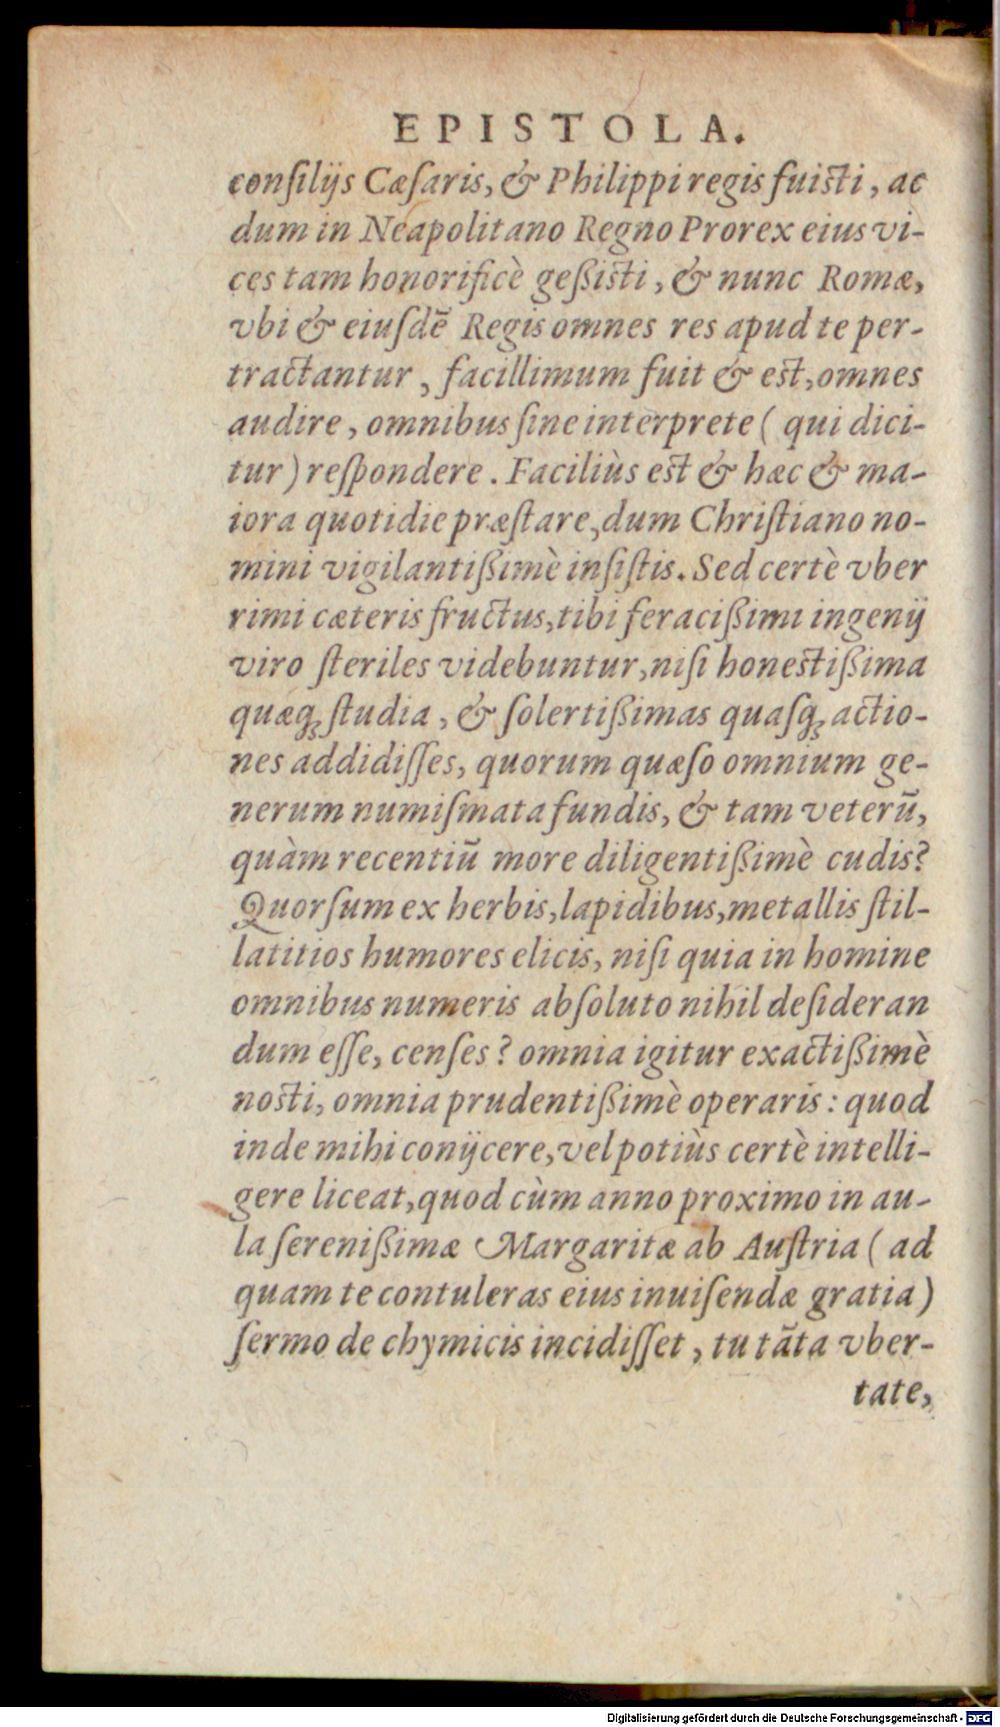 EPISTOLA.
conſilijs Cæſaris, & Philippi regis fuiſti, ac
dum in Neapolitano Regno Prorex eius vi-
ces tam honorificè geßiſti, & nunc Romæ,
vbi & eiuſdē Regis omnes res apud te per-
tractantur, facillimum fuit & eſt, omnes
audire, omnibus ſine interprete ( qui dici-
tur ) reſpondere. Faciliùs eſt & hæc & ma-
iora quotidie præſtare, dum Chriſtiano no-
mini vigilantißimè inſiſtis. Sed certè vber
rimi cæteris fructus, tibi feracißimi ingenij
viro ſteriles videbuntur, niſi honeſtißima
quæq; ſtudia, & ſolertißimas quaſq; actio-
nes addidiſſes, quorum quæſo omnium ge-
nerum numiſmata fundis, & tam veterū,
quàm recentiū more diligentißimè cudis?
Quorſum ex herbis, lapidibus, metallis ſtil-
latitios humores elicis, niſi quia in homine
omnibus numeris abſoluto nihil deſideran
dum eſſe, cenſes? omnia igitur exactißimè
noſti, omnia prudentißimè operaris: quod
inde mihi conijcere, vel potiùs certè intelli-
gere liceat, quod cùm anno proximo in au-
la ſerenißimæ Margaritæ ab Auſtria ( ad
quam te contuleras eius inuiſendæ gratia )
ſermo de chymicis incidiſſet, tu tāta vber-
tate,
Digitalisierung gefördert durch die Deutsche Forschungsgemeinschaft - DFG